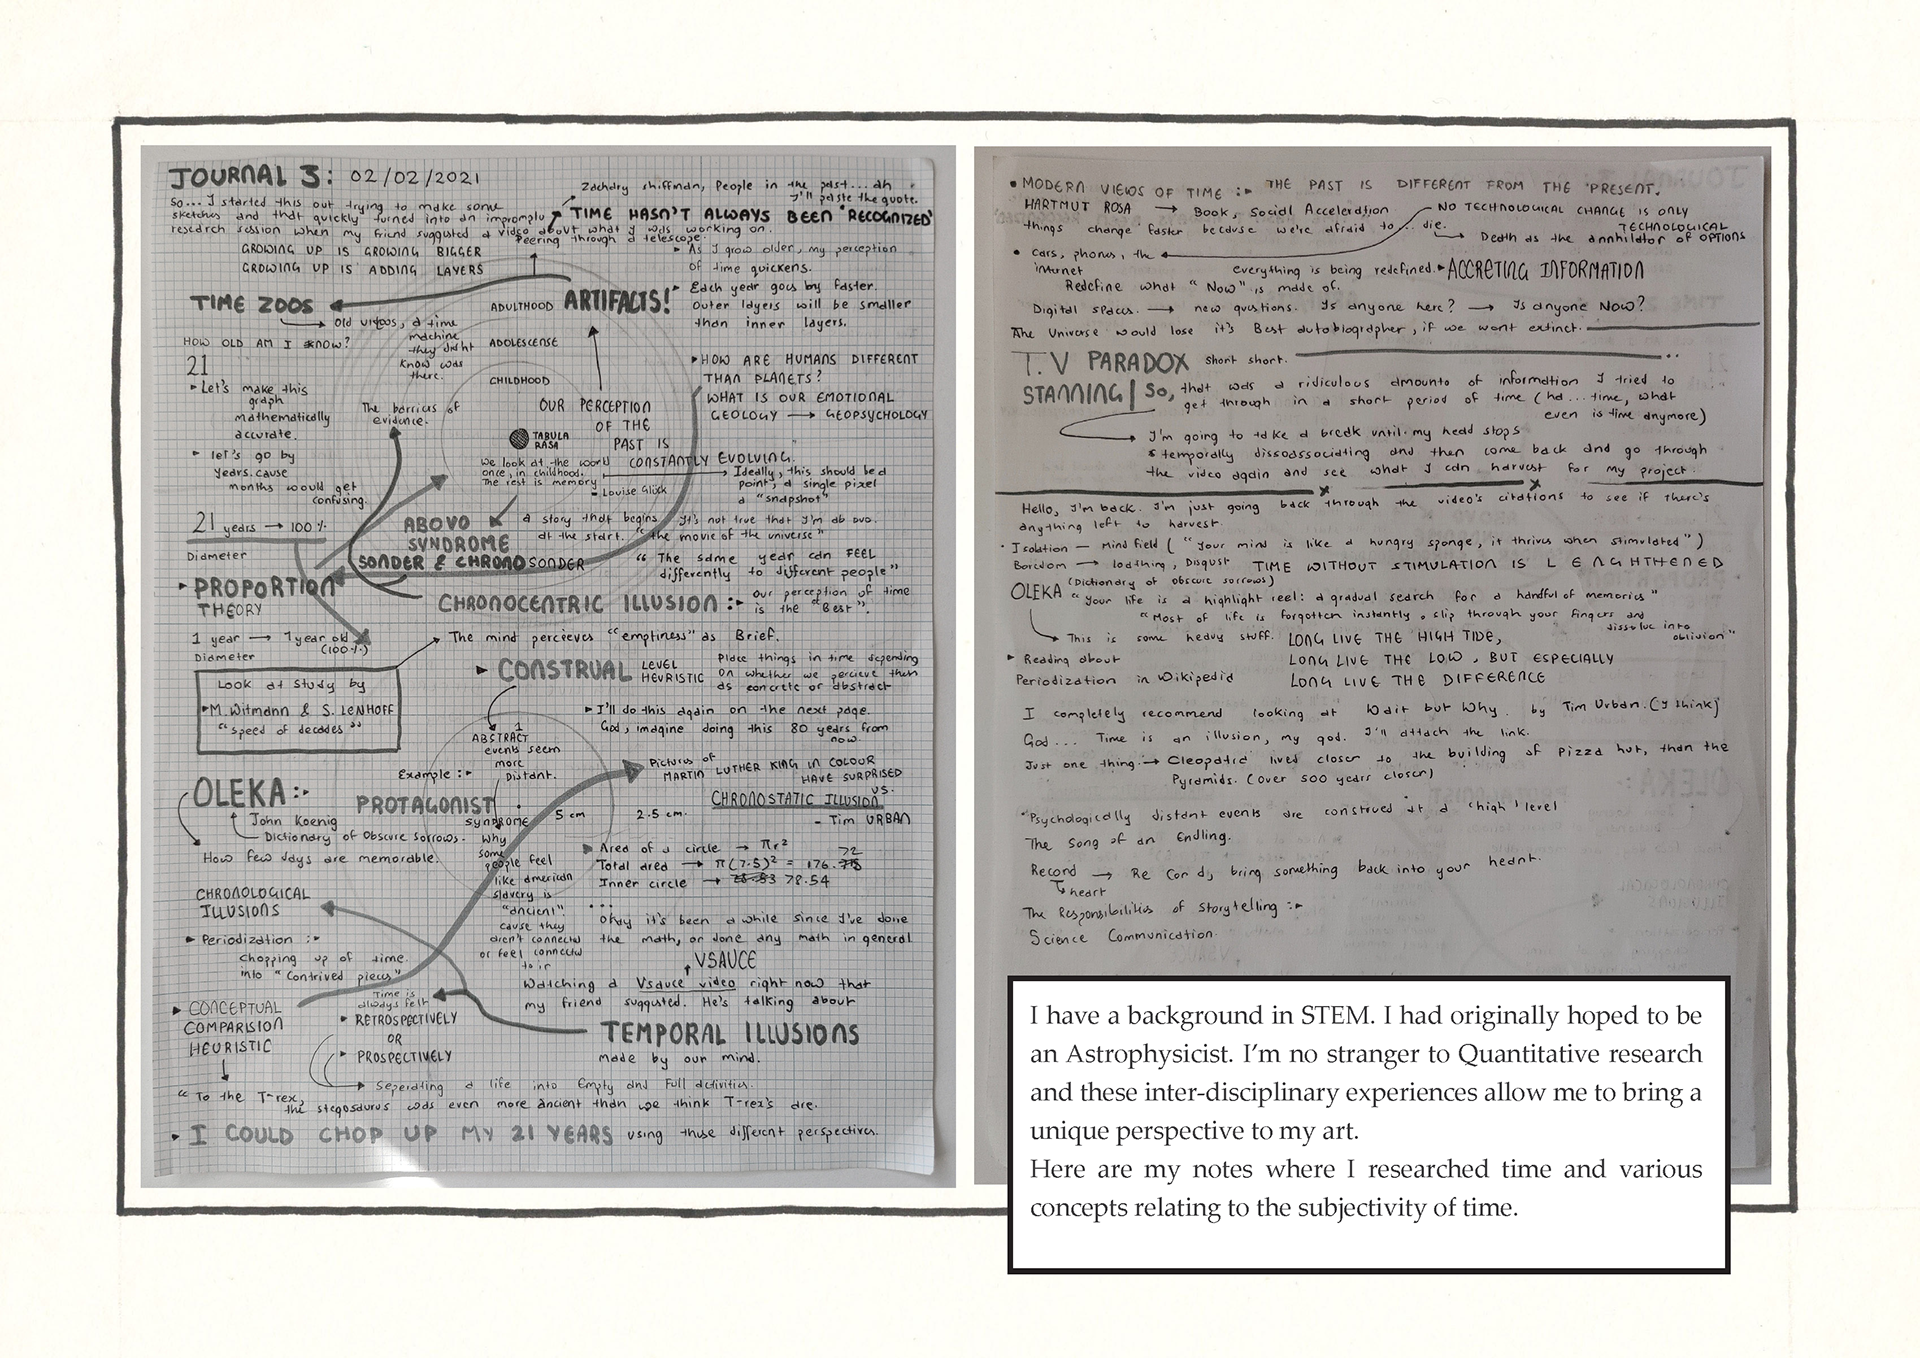 JOURNAL 3: 02/02/2021
So... I started this out trying to make some
sketches and that quickly turned into an impromptu
research session when my friend suggested a video about what I was working on.
Zachary Shiffman, People in the past... ah
I'll paste the quote.
TIME HASN'T ALWAYS BEEN "RECOGNIZED"
Peering through a telescope.
GROWING UP IS GROWING BIGGER
GROWING UP IS ADDING LAYERS
As I grow older, my perception
of time quickens.
Each year goes by faster.
Outer layers will be smaller
than inner layers.
TIME ZOOS
ADULTHOOD
ARTIFACTS!
Old videos, a time
machine
they didn't
know was
there.
HOW OLD AM I KNOW?
21
ADOLESCENSE
CHILDHOOD
Let's make this
graph
mathematically
accurate.
let's go by
years. cause
months would get
confusing.
The barriers of
evidence.
HOW ARE HUMANS DIFFERENT
THAN PLANETS?
WHAT IS OUR EMOTIONAL
GEOLOGY → GEOPSYCHOLOGY
OUR PERCEPTION
OF THE
PAST IS
CONSTANTLY EVOLVING.
TABULA
RASA
We look at the world
once, in childhood.
The rest is memory
- Louise Glück
Ideally, this should be a
point, a single pixel
a "snapshot"
21 years → 100 %
Diameter
ABOVO
SYNDROME
a story that begins
at the start.
It's not true that I'm ab ovo.
"the movie of the universe"
SONDER & CHRONOSONDER
"The same year can FEEL
differently to different people"
PROPORTION
THEORY
CHRONOCENTRIC ILLUSION :-
our perception of time
is the "Best".
1 year → 1 year old
(100%)
Diameter
The mind percieves "emptiness" as Brief.
Look at study by
M. Witmann & S. LENHOFF
"speed of decades"
CONSTRUAL LEVEL
HEURISTIC
Place things in time depending
on whether we percieve them
as concrete or abstract
I'll do this again on the next page.
God, imagine doing this 80 years from
now.
1
ABSTRACT
events seem
more
Distant.
Example :-
Pictures of
MARTIN LUTHER KING IN COLOUR
HAVE SURPRISED
US.
CHRONOSTATIC ILLUSION
- Tim URBAN
OLEKA :-
John Koenig
Dictionary of Obscure Sorrows.
How few days are memorable.
PROTAGONIST
SYNDROME
5 cm
2.5 cm.
Why
some
people feel
like american
slavery is
"ancient".
cause they
aren't connected
or feel connected
to it
Area of a circle → πr²
Total area → π(7.5)² = 176.72
Inner circle → 78.54
...
Okay it's been a while since I've done
the math, or done any math in general
CHRONOLOGICAL
ILLUSIONS
Periodization :-
chopping up of time.
into "Contrived pieces"
VSAUCE
Watching a Vsauce video right now that
my friend suggested. He's talking about
TEMPORAL ILLUSIONS
made by our mind.
CONCEPTUAL
COMPARISION
HEURISTIC
Time is
always felt
RETROSPECTIVELY
OR
PROSPECTIVELY
Seperating a life into Empty and Full activities.
"To the T-rex,
the stegosaurus was even more ancient than we think T-rex's are.
I COULD CHOP UP MY 21 YEARS using these different perspectives.
MODERN VIEWS OF TIME :- THE PAST IS DIFFERENT FROM THE PRESENT.
HARTMUT ROSA → Book, Social Acceleration
things change faster because we're afraid to... die.
NO TECHNOLOGICAL CHANGE IS ONLY
TECHNOLOGICAL
Death as the annhilator of OPTIONS
Cars, phones, the
internet
everything is being redefined. ACCRETING INFORMATION
Redefine what "Now" is made of.
Digital spaces. → new qustions. Is anyone here? → Is anyone Now?
The Universe would lose it's Best autobiographer, if we went extinct.
T.V PARADOX short short.
STANNING | So, that was a ridiculous amounto of information I tried to
get through in a short period of time (ha... time, what
even is time anymore)
I'm going to take a break until my head stops
temporally dissoassociating and then come back and go through
the video again and see what I can harvest for my project.
Hello, I'm back. I'm just going back through the video's citations to see if there's
anything left to harvest.
Isolation - Mind Field ("Your mind is like a hungry sponge, it thrives when stimulated")
Boredom → loathing, Disgust TIME WITHOUT STIMULATION IS L E NGHTHENED
(Dictionary of obscure sorrows)
OLEKA "Your life is a highlight reel: a gradual search for a handful of memories"
"Most of life is forgotten instantly, slip through your fingers and
dissolve into
oblivion"
This is some heavy stuff. LONG LIVE THE HIGH TIDE,
Reading about LONG LIVE THE LOW, BUT ESPECIALLY
Periodization in Wikipedia LONG LIVE THE DIFFERENCE
I completely recommend looking at Wait but Why. by Tim Urban. (I think)
God... Time is an illusion, my god. I'll attach the link.
Just one thing → Cleopatra lived closer to the building of Pizza hut, than the
Pyramids. (Over 500 years closer)
Psychologically distant events are construed at a "high" level
The Song of an Endling.
Record → Re Cord, bring something back into your heart.
heart
The Responsibilities of storytelling :-
Science Communication.
I have a background in STEM. I had originally hoped to be
an Astrophysicist. I'm no stranger to Quantitative research
and these inter-disciplinary experiences allow me to bring a
unique perspective to my art.
Here are my notes where I researched time and various
concepts relating to the subjectivity of time.